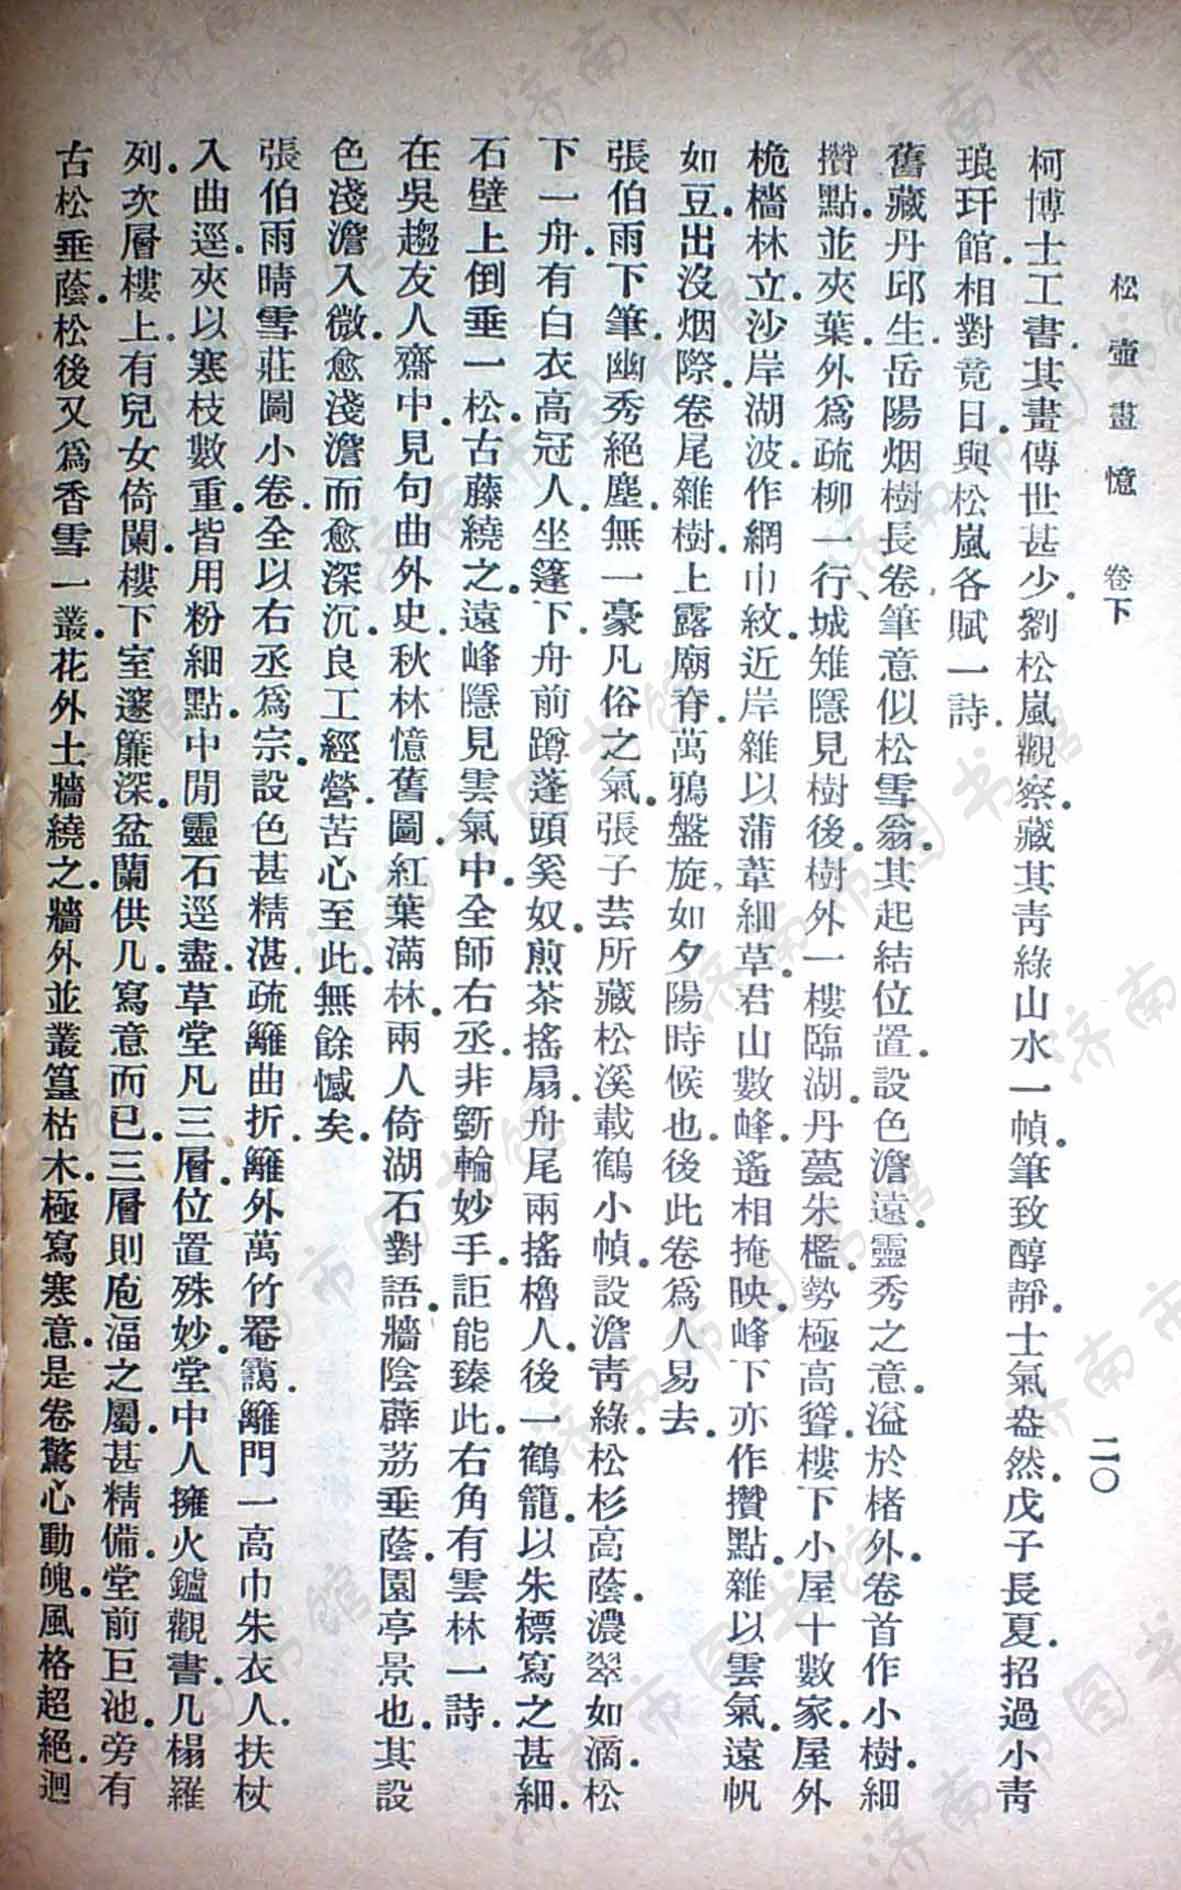 松壺畫憶　卷下　二〇
柯博士工書.其畫傳世甚少.劉松嵐觀察.藏其青綠山水一幀.筆致醇靜.士氣盎然.戊子長夏.招過小青
琅玕館.相對竟日.與松嵐各賦一詩.
舊藏丹邱生.岳陽烟樹長卷.筆意似松雪翁.其起結位置.設色澹遠.靈秀之意.溢於楮外.卷首作小樹.細
攢點.並夾葉.外爲疏柳一行.城雉隱見樹後.樹外一樓臨湖.丹甍朱檻.勢極高聳.樓下小屋十數家.屋外
桅檣林立.沙岸湖波.作網巾紋.近岸雜以蒲葦細草.君山數峰.遙相掩映.峰下亦作攢點.雜以雲氣.遠帆
如豆.出沒烟際.卷尾雜樹.上露廟脊.萬鴉盤旋.如夕陽時候也.後此卷爲人易去.
張伯雨下筆.幽秀絕塵.無一豪凡俗之氣.張子芸所藏松溪載鶴小幀.設澹青綠.松杉高蔭.濃翠如滴.松
下一舟.有白衣高冠人.坐篷下.舟前蹲蓬頭奚奴.煎茶搖扇.舟尾兩搖櫓人.後一鶴籠.以朱標寫之甚細.
石壁上倒垂一松.古藤繞之.遠峰隱見雲氣中.全師右丞.非斲輪妙手.詎能臻此.右角有雲林一詩.
在吳趨友人齋中.見句曲外史.秋林憶舊圖.紅葉滿林.兩人倚湖石對語.牆陰薜荔垂蔭.園亭景也.其設
色淺澹入微.愈淺澹而愈深沉.良工經營.苦心至此.無餘憾矣.
張伯雨晴雪莊圖小卷.全以右丞爲宗.設色甚精湛.疏籬曲折.籬外萬竹罨靄.籬門一高巾朱衣人.扶杖
入曲逕.夾以寒枝數重.皆用粉細點.中閒靈石逕盡.草堂凡三層.位置殊妙.堂中人擁火鑪觀書.几榻羅
列.次層樓上.有兒女倚闌.樓下室邃簾深.盆蘭供几.寫意而已.三層則庖湢之屬.甚精備.堂前巨池.旁有
古松垂蔭.松後又爲香雪一叢.花外土牆繞之.牆外並叢篁枯木.極寫寒意.是卷驚心動魄.風格超絕.迴